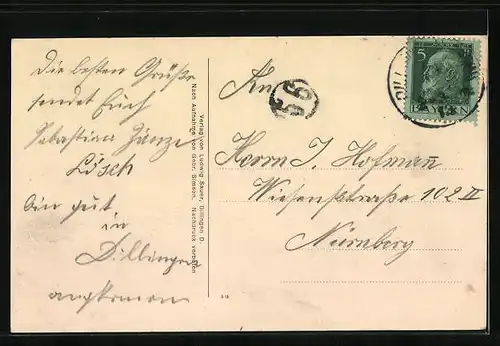 Die besten Grüße
sendet Euch
Sebastian
Lösch
bin gut
in
Dillingen
angekommen
Verlag von Ludwig Sauer, Dillingen D.
Nach Aufnahme von Gebr. Simson. Nachdruck verboten
An
99
5
BAYERN
DILL
Herrn J. Hofmann
Wiesenstrasse 102 II
Nürnberg